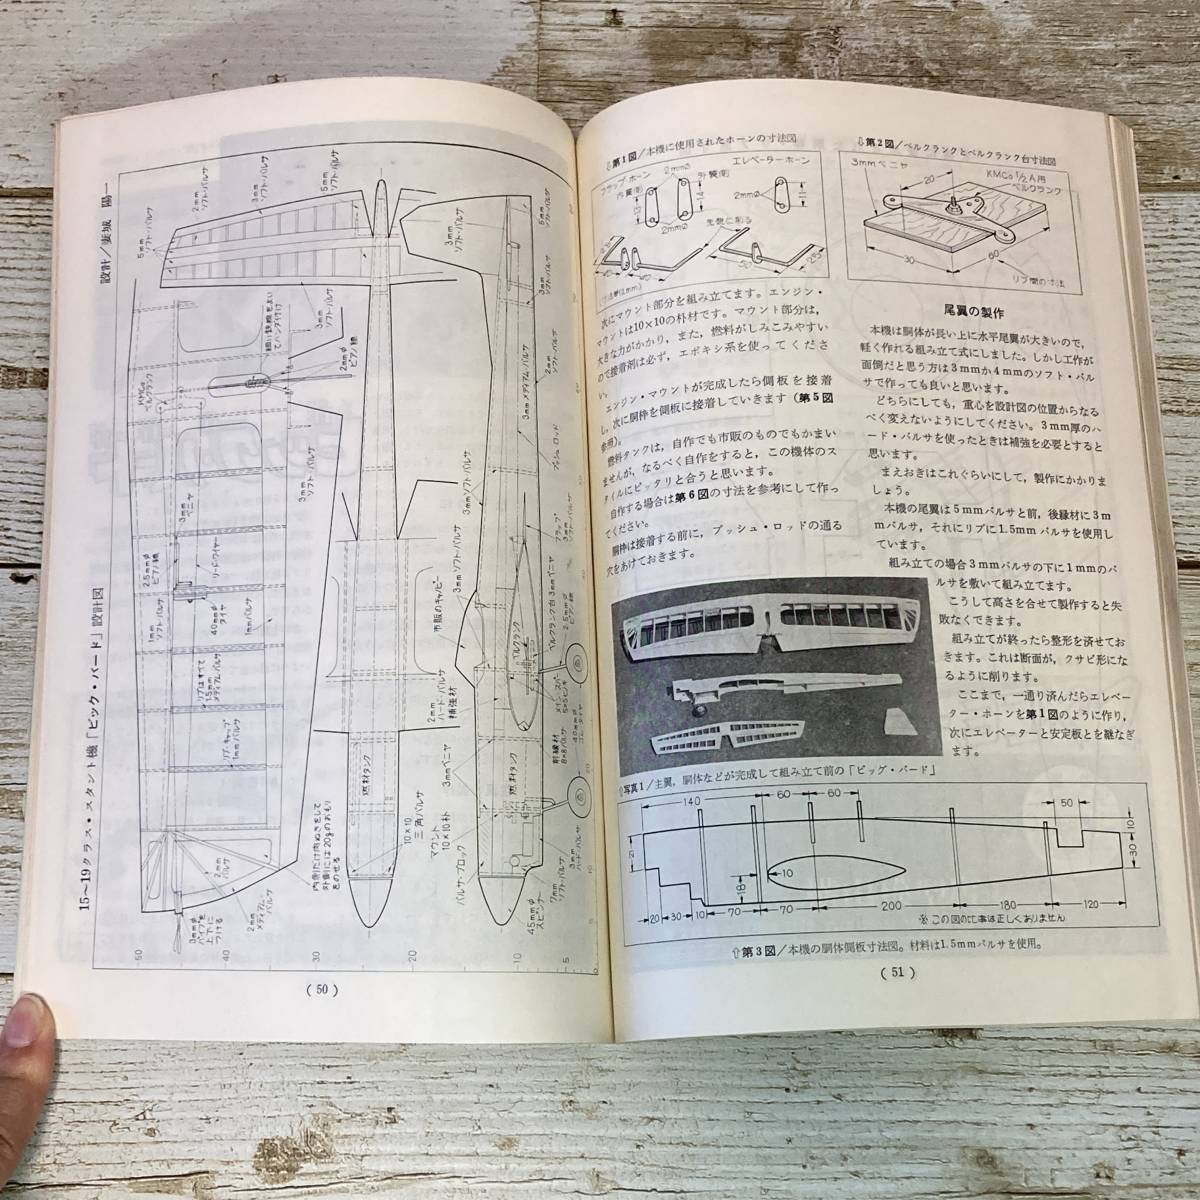 15~19クラス・スタント機「ビッグ・バード」設計図
設計/妻城 陽一
5mm
ソフト・バルサ
2mm
ソフト・バルサ
3mm
ソフト・バルサ
5mm
ソフト・バルサ
KMCo
ベルクランク
2mmφ
ピアノ線
3mm
ソフト・バルサ
3mm
ベニヤ
2.5mmφ
ピアノ線
リード・ワイヤー
40mmφ
タイヤ
1mmソフト・バルサ
1mmバルサ
リブはすべて
1.5mm
メディアム・バルサ
リブ・キャップ
1mmバルサ
2mm
バルサ
2mm
メディアム・バルサ
3mmφ
パイプを
上下に
つける
内側だけ肉ぬきをして
外側には20gのおもり
をのせる
燃料タンク
10×10
三角バルサ
マウント
10×10朴
バルサ・ブロック
3mmベニヤ
2mm
ハード・バルサ
補強材
市販のキャノピー
3mmソフト・バルサ
3mm
ソフト・バルサ
3mmメディアム・バルサ
プッシュ・ロッド
2mm
ソフト・バルサ
フラップ
3mm
ソフト・バルサ
ベルクランク
ベルクランク台3mmベニヤ
2.5mmφ
ピアノ線
メイン・スパー
5×5ヒノキ
前縁材
8×8バルサ
燃料タンク
45mmφ
スピンナー
7mm
ソフト・バルサ
3mm
ハード・バルサ
50
40
30
20
10
5
0
(50)
⇩第1図/本機に使用されたホーンの寸法図
フラップ・ホーン
内翼側
2mmφ
外翼側
エレベーターホーン
2mmφ
2mmφ
13
14
11
先鋭に削る
50
25
(寸法単位mm)
⇩第2図/ベルクランクとベルクランク台寸法図
3mmベニヤ
20
KMCo1/2A用
ベルクランク
30
60
リブ間の寸法
次にマウント部分を組み立てます。エンジン・
マウントは10×10の朴材です。マウント部分は、
大きな力がかかり、また、燃料がしみこみやすい
ので接着剤は必ず、エポキシ系を使ってくださ
い。
エンジン・マウントが完成したら側板を接着
し、次に胴枠を側板に接着していきます(第5図
参照)。
燃料タンクは、自作でも市販のものでもかまい
ませんが、なるべく自作をすると、この機体のス
タイルにピッタリと合うと思います。
自作する場合は第6図の寸法を参考にして作っ
てください。
胴枠は接着する前に、プッシュ・ロッドの通る
穴をあけておきます。
尾翼の製作
本機は胴体が長い上に水平尾翼が大きいので、
軽く作れる組み立て式にしました。しかし工作が
面倒だと思う方は3mmか4mmのソフト・バル
サで作っても良いと思います。
どちらにしても、重心を設計図の位置からなる
べく変えないようにしてください。3mm厚のハ
ード・バルサを使ったときは補強を必要とすると
思います。
まえおきはこれぐらいにして、製作にかかりま
しょう。
本機の尾翼は5mmバルサと前、後縁材に3m
mバルサ、それにリブに1.5mmバルサを使用し
ています。
組み立ての場合3mmバルサの下に1mmのバ
ルサを敷いて組み立てます。
こうして高さを合せて製作すると失
敗なくできます。
組み立てが終ったら整形を済せてお
きます。これは断面が、クサビ形にな
るように削ります。
ここまで、一通り済んだらエレベー
ター・ホーンを第1図のように作り、
次にエレベーターと安定板とを継なぎ
ます。
⇧写真1/主翼、胴体などが完成して組み立て前の「ビッグ・バード」
140
60
60
50
10
30
18
10
20
30
10
70
70
200
180
120
※この図の比率は正しくありません
⇧第3図/本機の胴体側板寸法図。材料は1.5mmバルサを使用。
(51)